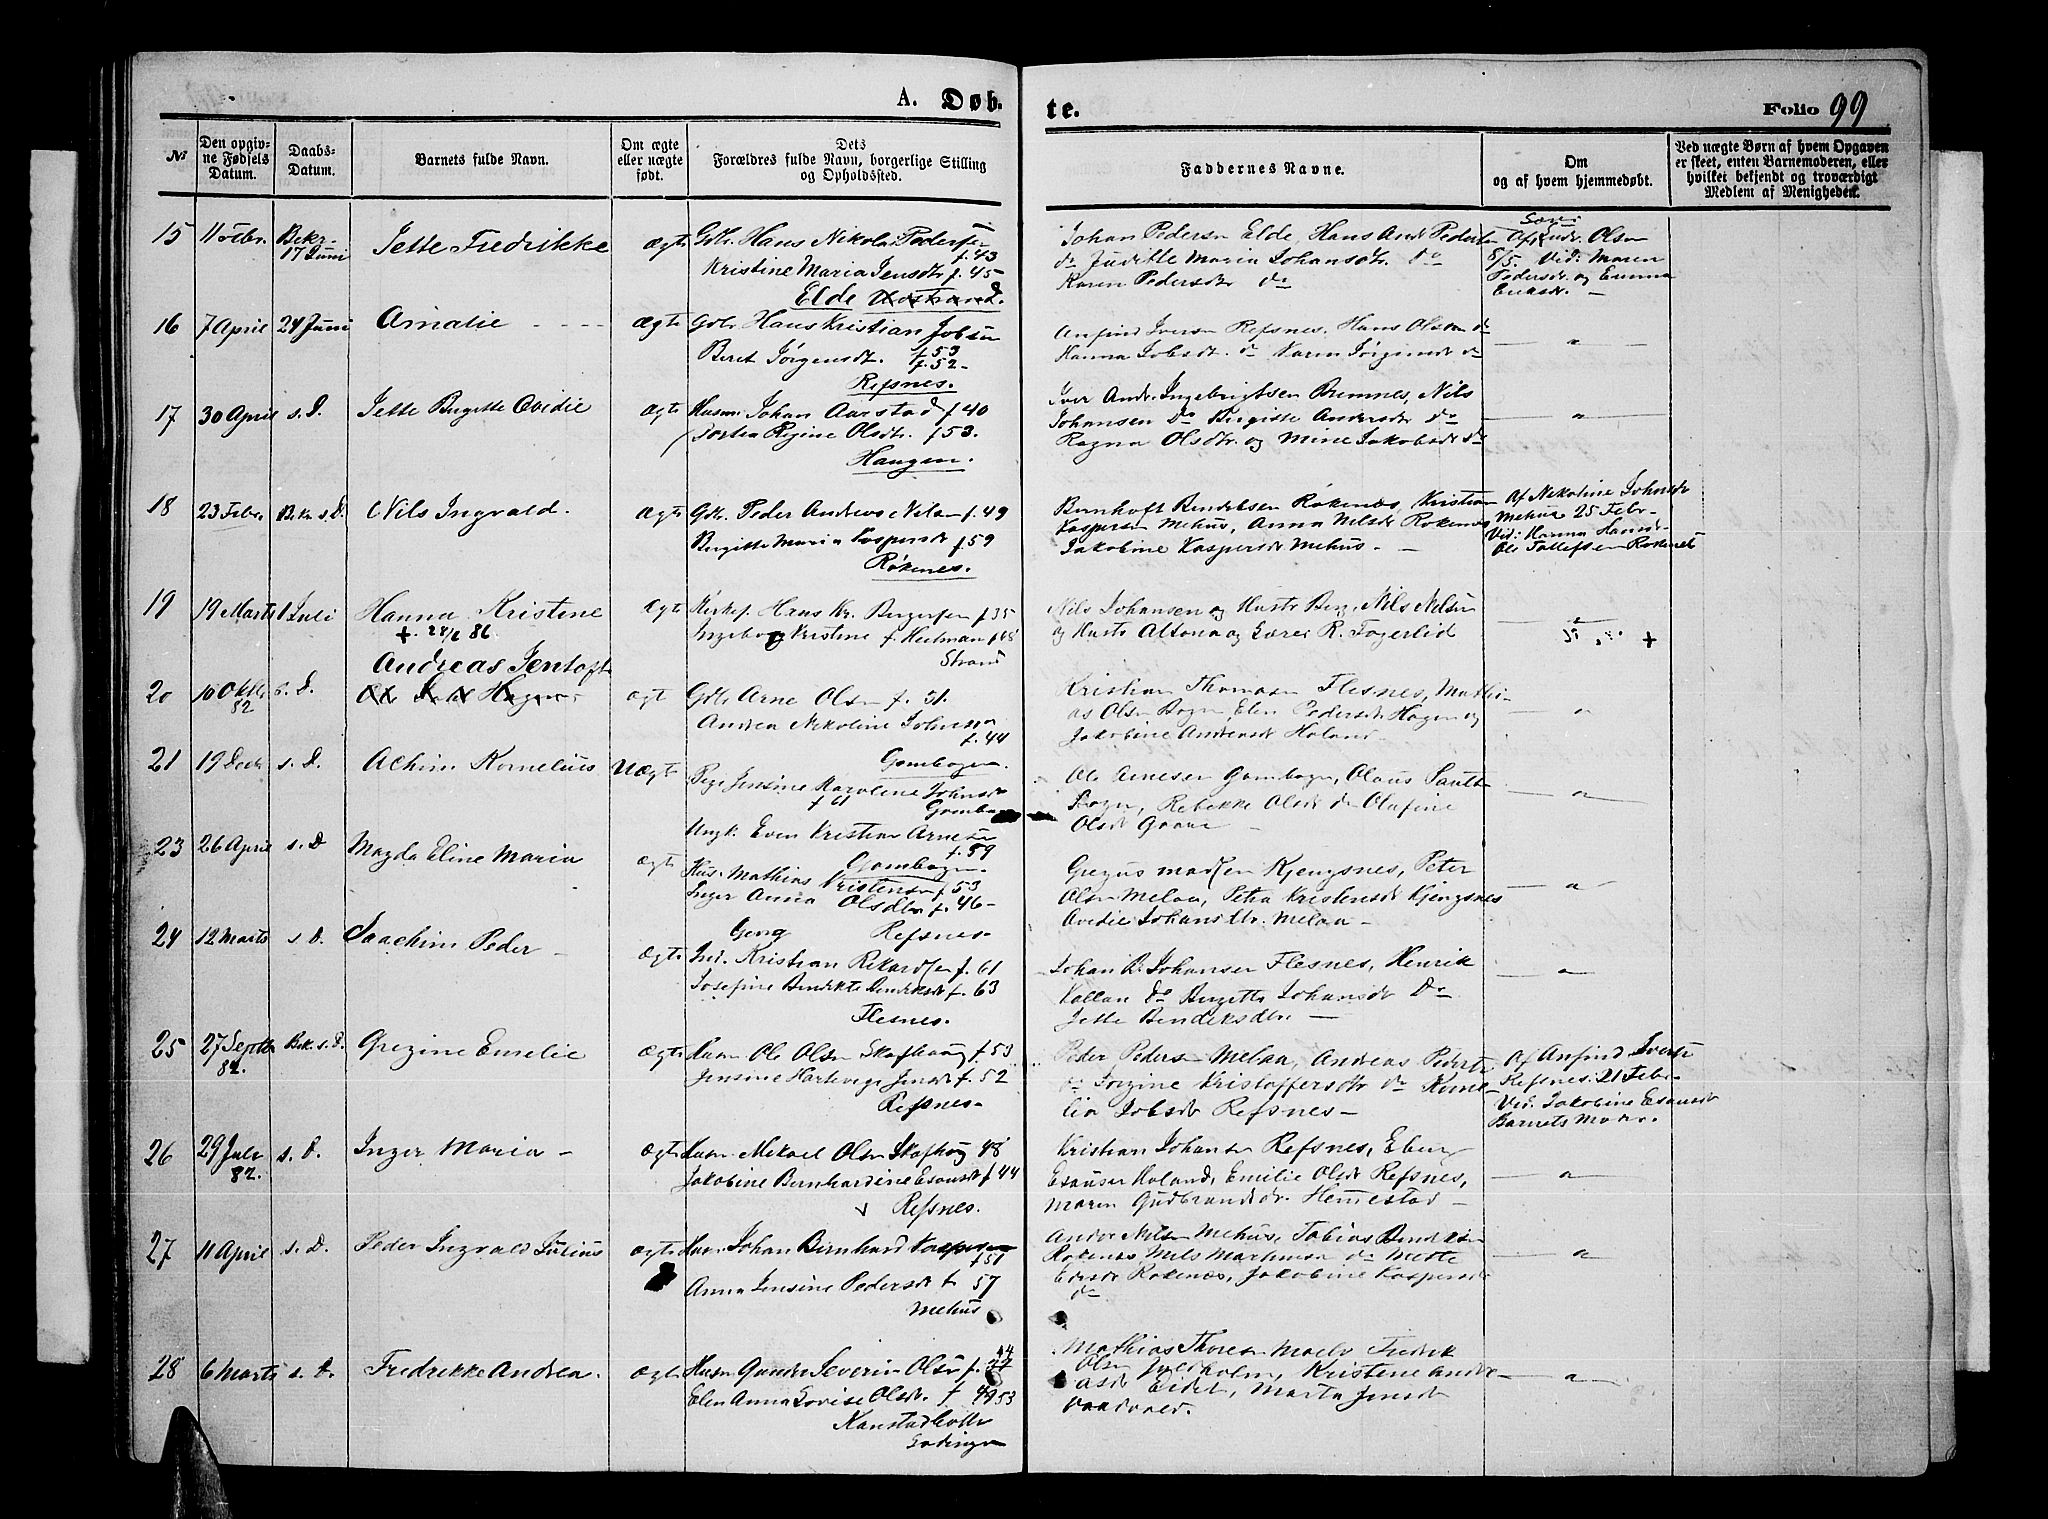 A. Døb-
te.
Folio 99
№
Den opgiv-
ne Fødsels
Datum.
Daabs-
Datum.
Barnets fulde Navn.
Om ægte
eller uægte
født.
Dets
Forældres fulde Navn, borgerlige Stilling
og Opholdssted.
Faddernes Navne.
Om
og af hvem hjemmedøbt.
Ved uægte Børn af hvem Opgaven
er skeet, enten Barnemoderen, eller
hvilket bekjendt og troværdigt
Medlem af Menigheden.
15 11 Febr. Bekr. 17 Juni Jette Fredrikke ægte Gdbr. Hans Nikolai Pedersen f. 43
Kristine Maria Jensdtr. f. 45
Elde
Johan Pedersen Elde, Hans And. Pedersen
do Judithe Maria Johansdtr. do
Karen Pedersdtr do
Olsen
8/5. Vid: Maren
Pedersdr. og Emma
16 7 April 24 Juni Amalie ægte Gdbr Hans Kristian Jobsen
f. 53
Beret Jørgensdt. f. 52
Refsnes.
Anfind Iversen Refsnes. Hans Olsen do
Hanna Jobsdt. do Karen Jørgensdt do
17 30 April s. D. Jette Birgitte Ovidie ægte Husm. Johan Aarstad f. 40
Dortea Regine Olsdtr. f 53.
Haugen.
Iver Andr. Ingebrigtsen Bremnes, Nils
Johansen do Birgitte Andersdr do
Ragna Olsdtr. og Mine Jakobsdt do
18 23 Febr. Bekr s. D. Nils Ingvald. ægte Gdbr. Peder Andreas Nilsen f. 49
Birgitte Maria Kaspersdt f. 59
Røkenes.
Bernhoft Bendiksen Røkenæs, Kristian
Kaspersen Mehus, Anna Nilsdt Røkenes
Jakobine Kaspersdt Mehus. —
Af Nikoline Johnsdt
Mehus 25 Febr.
Vid: Hanna Hansdr.
Ole Tollefsen Røkenes
19 19 Marts 1 Juli Hanna Kristine ægte Kirkes. Hans Kr. Bergersen f 35
+. 86
Ingeborg Kristine f. Heitman f 48
Strand
Nils Johansen og Hustr Berg, Nils Nilsen
og Hustr Altona og Lærer R. Fagerlid
Andreas Jentoft
20 10 Oktbr 82 s. D. ægt Gdbr Arne Olsen f. 51.
Andrea Nikoline Johnsen
f. 44
Gambogen.
Kristian Thomasen Flesnes, Mathi-
as Olsen Bogen, Elen Pedersdt. Hagen og
Jakobine Andersdt Holand.
21 19 Decbr. s. D. Achim Kornelius Uægte Pige Jensine Karoline Johnsdt
f 61 Gambogen
Ungk. Even Kristian Arnesen
f. 59
Gambogen.
Ole Arnesen Gambogen, Olaus Paulsen
Bogen, Rebekke Olsdt do Olufine
Olsdt Gaare —
23 26 April s. D Magda Eline Maria ægte Hus. Mathias Kristensen f 53
Inger Anna Olsdtr f. 46
Refsnes
Gregus Madsen Kjengsnes, Peter
Olsen Melaa, Petra Kristensdt Kjengsnes
Ovedie Johansdtr. Melaa —
24 12 Marts s D. Joachim Peder — ægte Ind. Kristian Rikardsen f. 61
Josefine Bendikte Bendiksdt f. 63
Flesnes.
Johan B. Johansen Flesnes, Henrik
do Birgitte Johansdt do
Jette Bendiksdtr. —
25 27 Septbr 82. Bek. s. D. Gregine Emelie ægte Husm Ole Olsen Skafhaug f. 53
Jensine Hartevige Jensdt f. 52
Refsnes
Peder Pedersen Melaa, Andreas Pedersen
do Jorgine Kristoffersdtr do Korne-
lia Jobsdt Refsnes —
Af Anfind Iversen
Refsnes. 21 Febr.
Vid. Jakobine Esausdt
Barnets Moder.
26 29 Juli 82. s. D. Inger Maria — ægte Husm Mikael Olsen Skafhaug 48
Jakobine Bernhardine Esausdt f 44
Refsnes.
Kristian Johansen Refsnes, Eberg
Esausen Holand, Emilie Olsdt Refsnes,
Maren Gudbrandsdr. Hemestad —
27 11 April s. D. Peder Ingvald Julius ægte Husm Johan Bernhard Kaspersen
f 51
Anna Jensine Pedersdt f 57
Mehus
Andor Nilsen Mehus, Tobias Bendiksen
Røkenæs Nils Martinsen do Mette
Røkenæs, Jakobine Kaspersdt
do
28 6 Marts s. D. Fredrikke Andrea. ægte Husm Gunder Severin Olsen f. 44
Elen Anna Lovise Olsdt. f 53
Kanstadbotn
Lødingen
Mathias Thoresen Fredrik
Olsen Kristine Andre-
asdt Eidet, Marta Jensdt